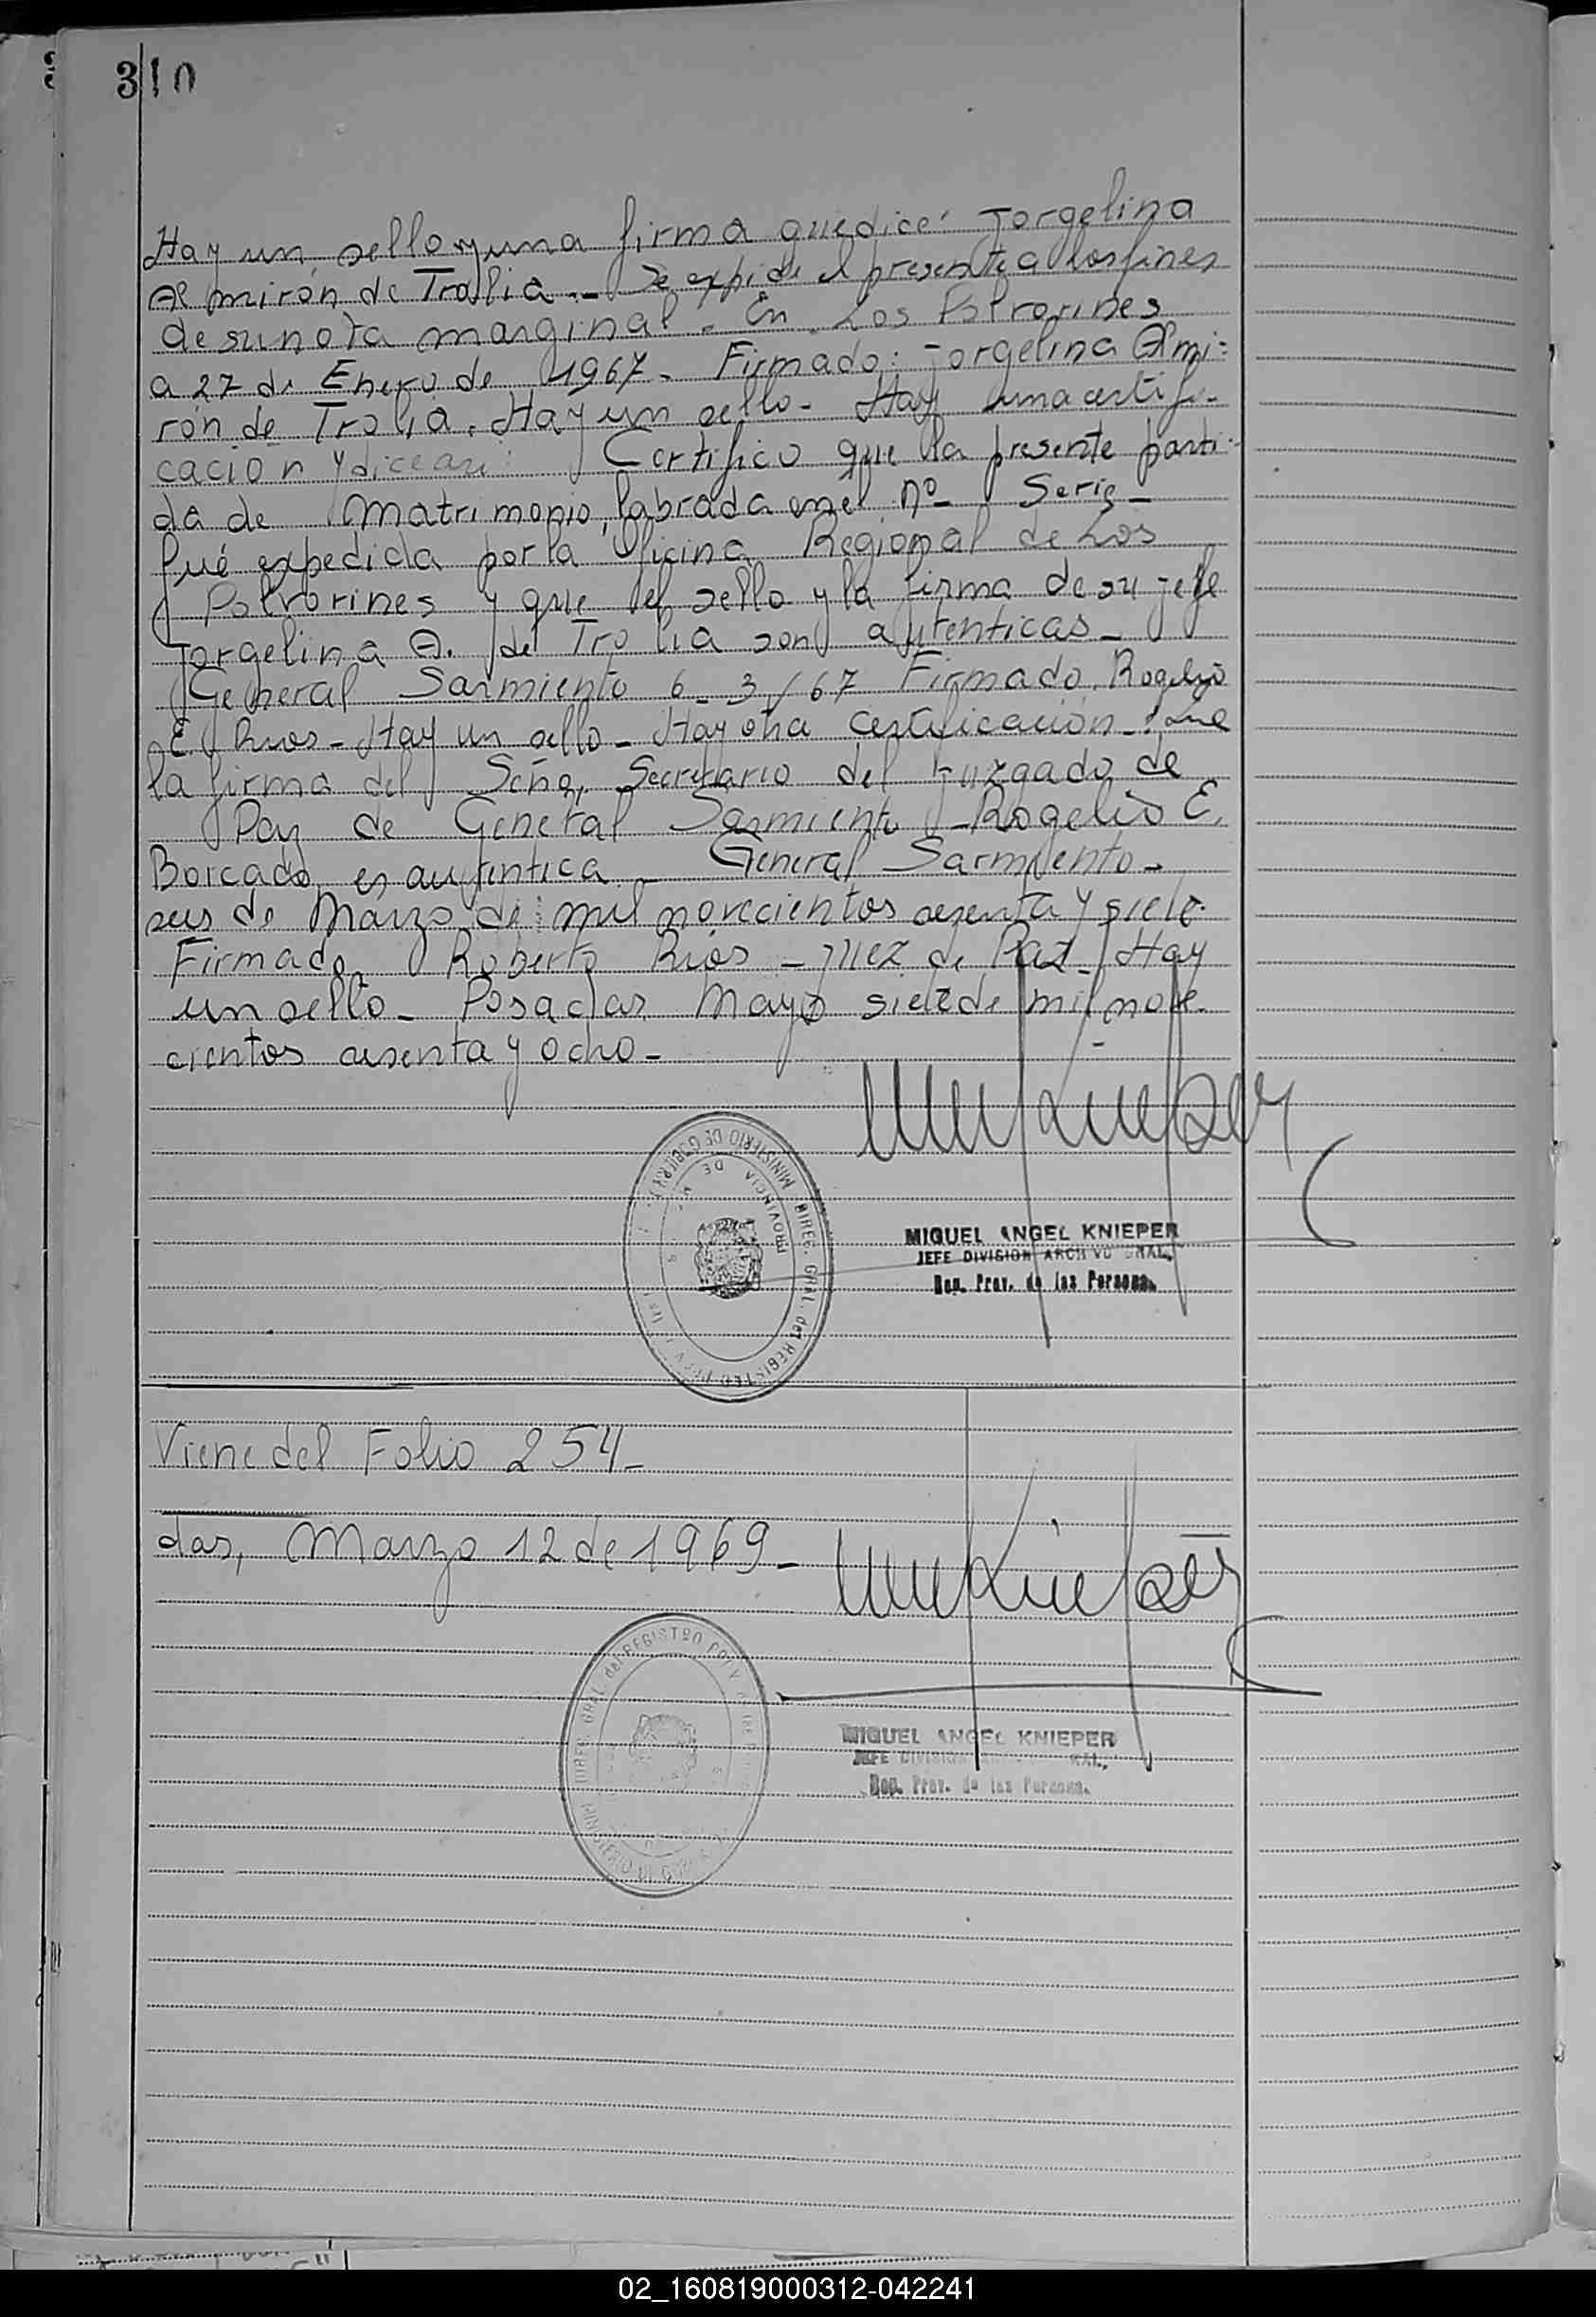 310
Hay un sello y una firma que dice: Jorgelina
Almirón de Trolia.- Se expide el presente a los fines
de su nota marginal. En Los Polvorines
a 27 de Enero de 1967- Firmado: Jorgelina Almi=
rón de Trolia. Hay un sello- Hay una certifi-
cación y dice así: Certifico que la presente parti-
da de matrimonio, labrada en el nº- Serie-
fué expedida por la Oficina Regional de Los
Polvorines y que el sello y la firma de su jefe
Jorgelina A. de Trolia son autenticas-
General Sarmiento 6-3/67 Firmado. Rogelio
E. Rios- Hay un sello- Hay otra certificación-: Que
la firma del Señor Secretario del Juzgado de
Paz de General Sarmiento - Rogelio E.
es autentica - General Sarmiento-
seis de Marzo de mil novecientos sesenta y siete.
Firmado Roberto Rios - Juez de Paz- Hay
un sello- Posadas Mayo siete de mil nove-
cientos sesenta y ocho-
MINISTERIO DE GOBIERNO DIREC. GRAL. del REGISTRO
PROVINCIA DE
MIGUEL ANGEL KNIEPER
JEFE DIVISION ARCHIVO GRAL.
Reg. Prov. de las Personas
Viene del Folio 254-
das, Marzo 12 de 1969-
DIREC. GRAL. del REGISTRO
MINISTERIO DE
MIGUEL ANGEL KNIEPER
JEFE DIVISION GRAL.
Reg. Prov. de las Personas
02_160819000312-042241